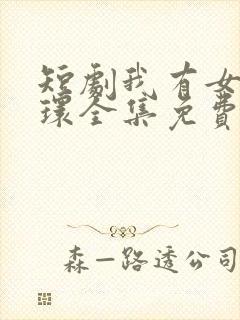 短劇我有女
環全集免費
森一路透公司